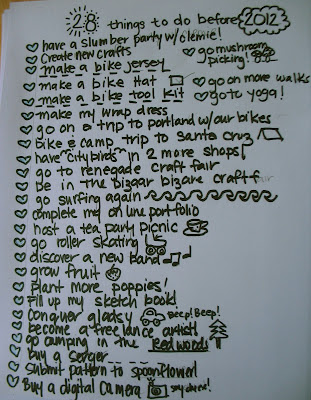 28 things to do before 2012!
have a slumber party w/olemie!
Create new crafts
go mushroom picking!
make a bike jersey
make a bike Hat
go on more walks
make a bike tool kit
go to yoga!
make my wrap dress
go on a trip to portland w/our bikes
bike & camp trip to santa cruz
have "city birds" in 2 more shops!
go to renegade craft fair
be in the bizaar bizare craft f
go surfing again
complete my on line portfolio
host a tea party picnic
go roller skating
discover a new band
grow fruit
plant more poppies!
Fill up my sketch book!
Conquer gladys Beep! Beep!
become a freelance artist
go camping in the Red woods
buy a serger
submit pattern to spoonflower
Buy a digital Camera say cheese!